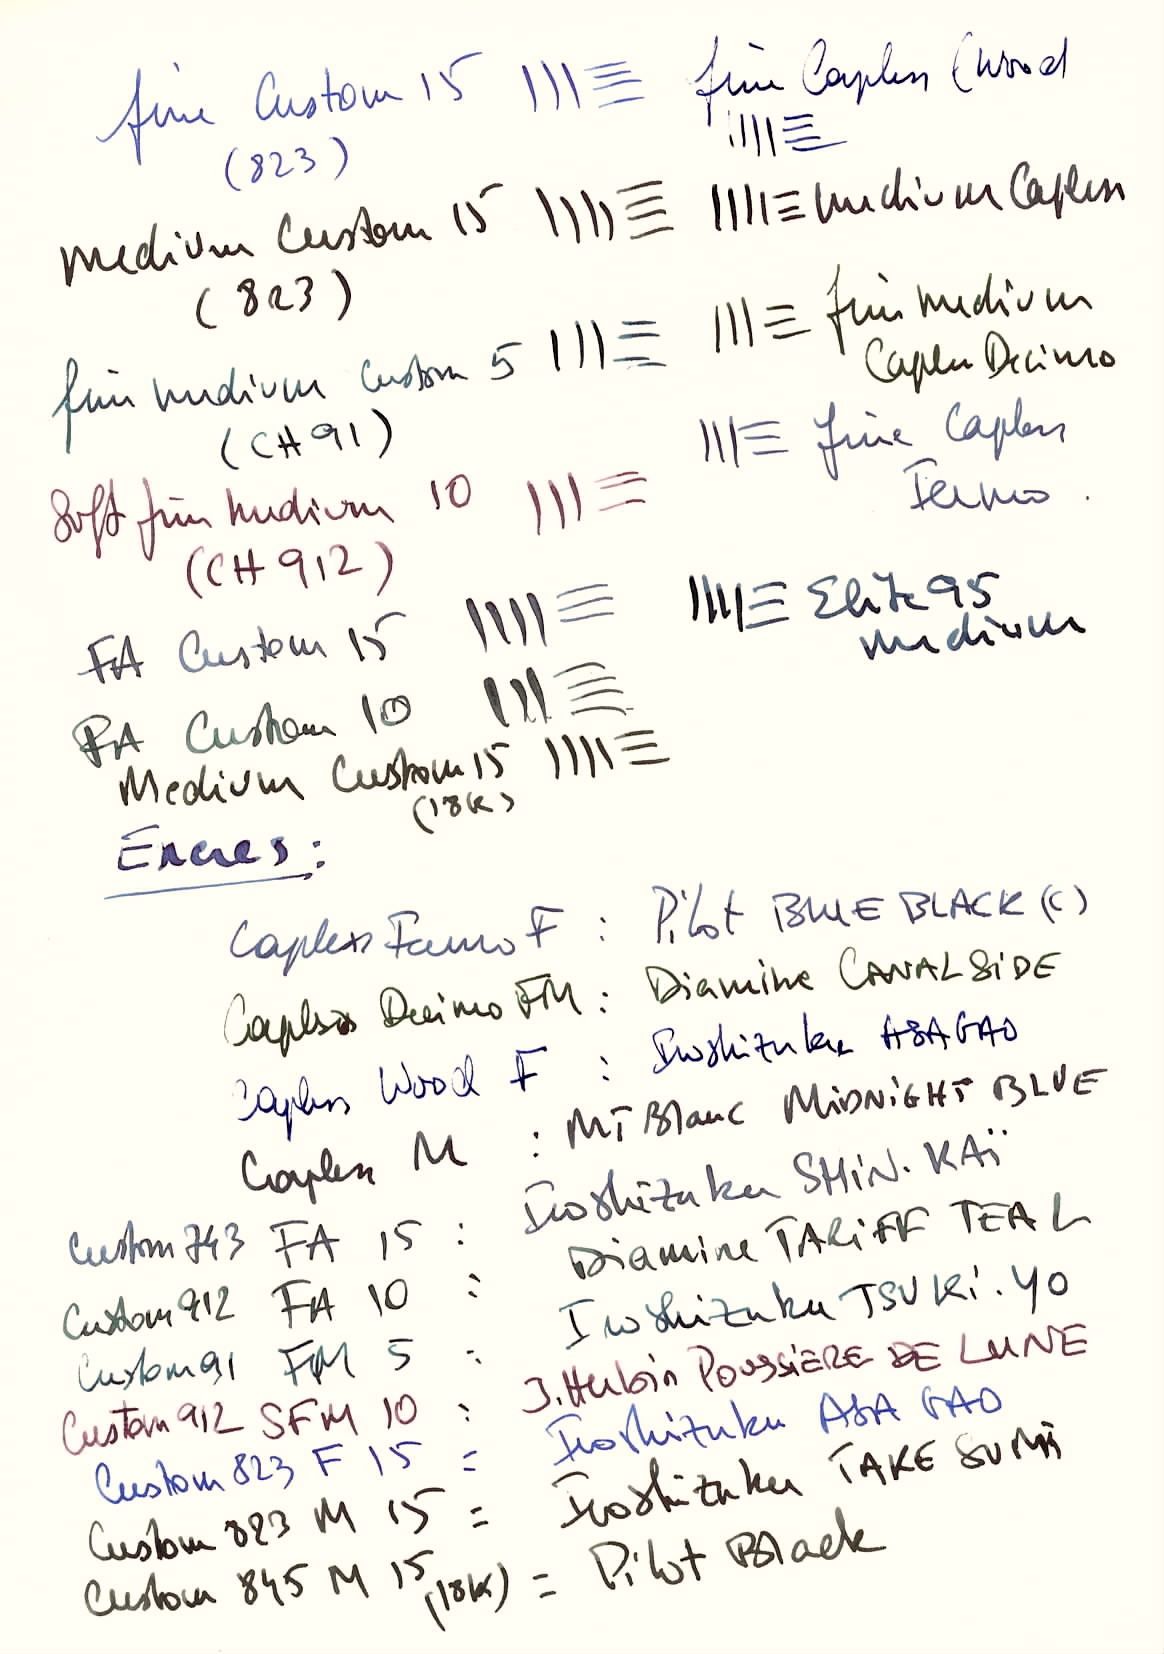 fine Custom 15
(823)
fine Capless (Wood
Medium Custom 15
(823)
medium Capless
fine medium Custom 5
(CH 91)
fine medium
Capless Decimo
Soft fine medium 10
(CH 912)
fine Capless
Fermo.
FA Custom 15
Elite 95
medium
FA Custom 10
Medium Custom 15
(18K)
Encres :
Capless Fermo F : Pilot BLUE BLACK (C)
Capless Decimo FM : Diamine CANAL SIDE
Capless Wood F : Iroshizuku ASAGAO
Capless M : MT Blanc MIDNIGHT BLUE
Custom 743 FA 15 : Iroshizuku SHIN-KAÏ
Custom 912 FA 10 : Diamine TARIFF TEAL
Custom 91 FM 5 : Iroshizuku TSUKI-YO
Custom 912 SFM 10 : J. Herbin POUSSIÈRE DE LUNE
Custom 823 F 15 = Iroshizuku ASA GAO
Custom 823 M 15 = Iroshizuku TAKE SUMI
Custom 845 M 15 (18K) = Pilot Black